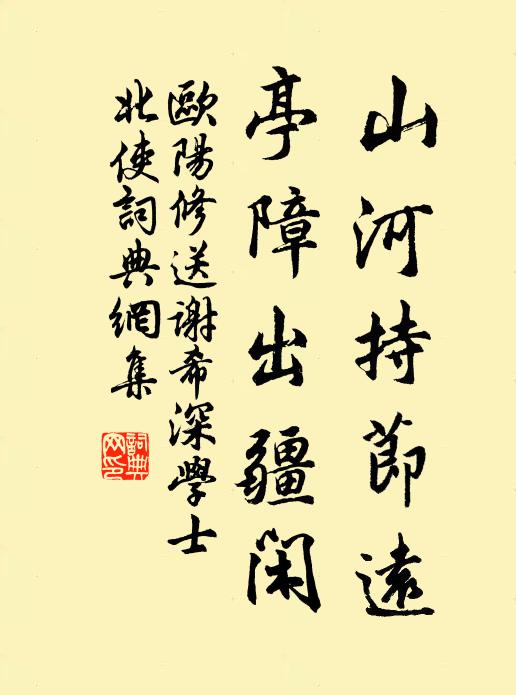 山河持節遠
亭障出疆閑
歐陽修送謝希深學士
北使詞典網集
詞典
网印